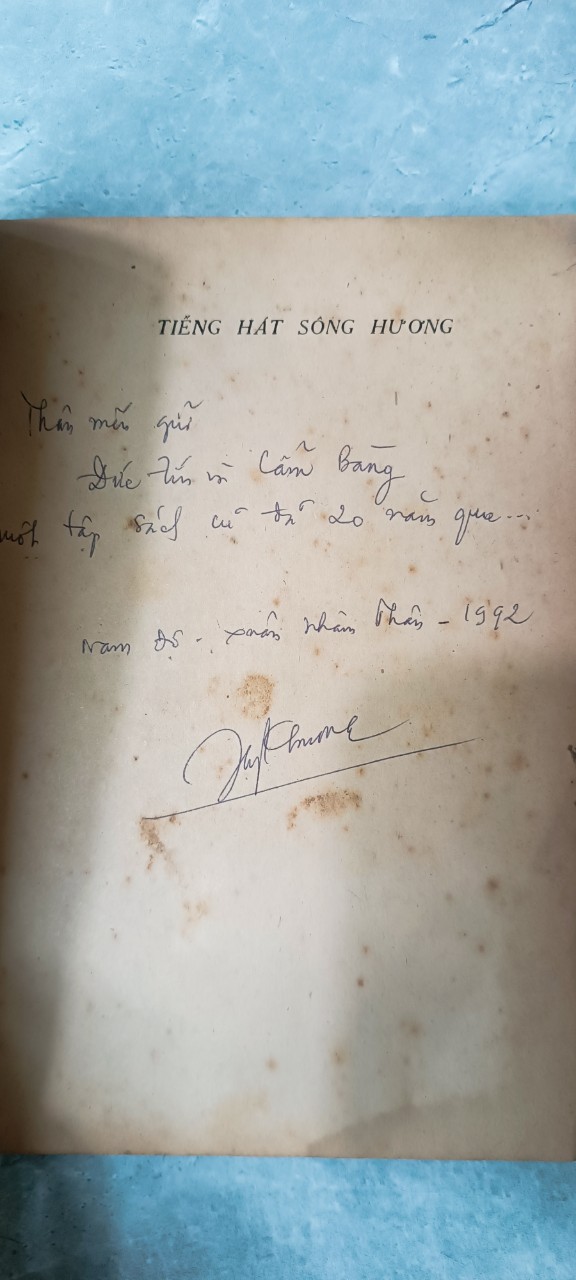 TIẾNG HÁT SÔNG HƯƠNG
Thân mến gửi
Đức Tín và Cẩm Bằng
một tập sách cũ đã 20 năm qua...
Nam Độ - Xuân Nhâm Thân - 1992